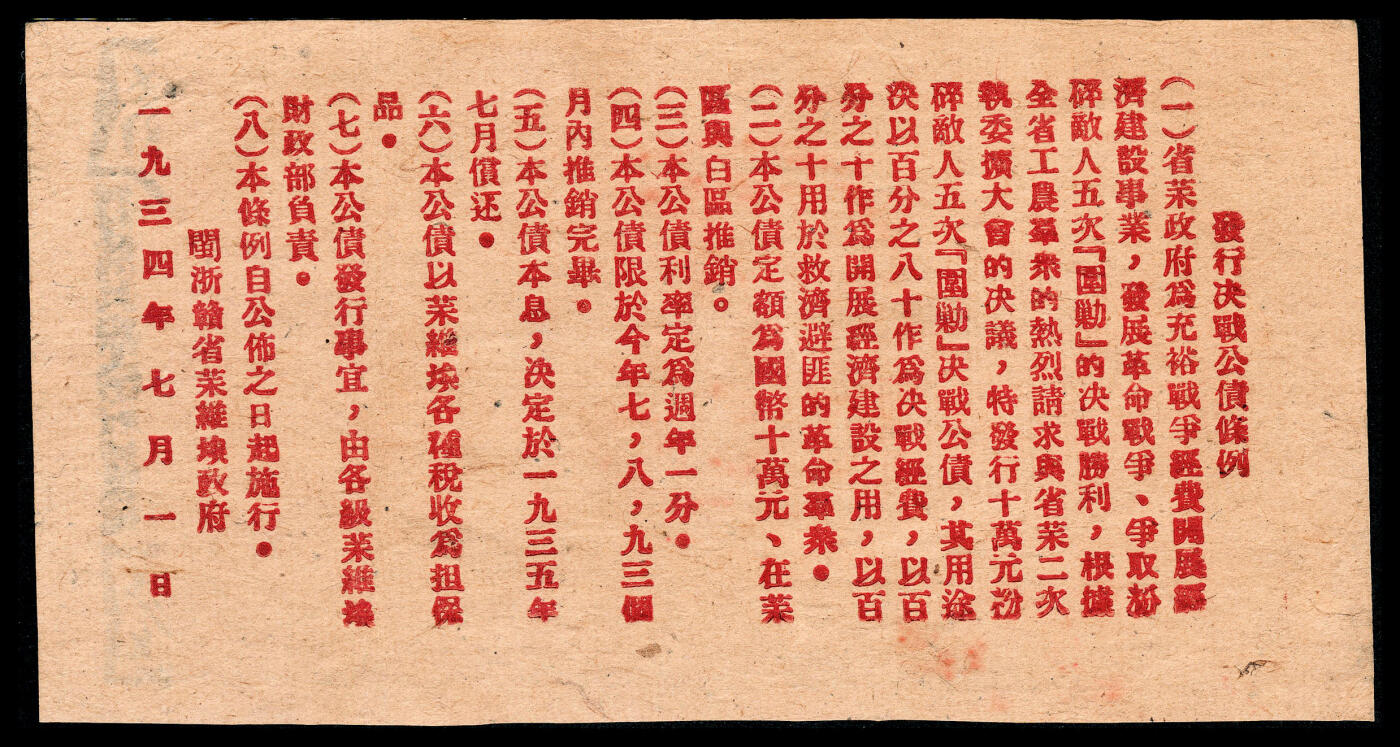 發行决戰公債條例
(一)省苿政府爲充裕戰爭經費開展經
濟建設事業,發展革命戰爭、爭取粉
碎敵人五次『圍勦』的决戰勝利,根據
全省工農羣衆的熱烈請求與省苿二次
執委擴大會的决議,特發行十萬元粉
碎敵人五次『圍勦』决戰公債,其用途
决以百分之八十作爲决戰經費,以百
分之十作爲開展經濟建設之用,以百
分之十用於救濟避匪的革命羣衆。
(二)本公債定額爲國幣十萬元、在苿
區與白區推銷。
(三)本公債利率定爲週年一分。
(四)本公債限於今年七,八,九三個
月內推銷完畢。
(五)本公債本息,决定於一九三五年
七月償还。
(六)本公債以苿維埃各種稅收爲担保
品。
(七)本公債發行事宜,由各級苿維埃
財政部負責。
(八)本條例自公佈之日起施行。
閩浙贛省苿維埃政府
一九三四年七月一日